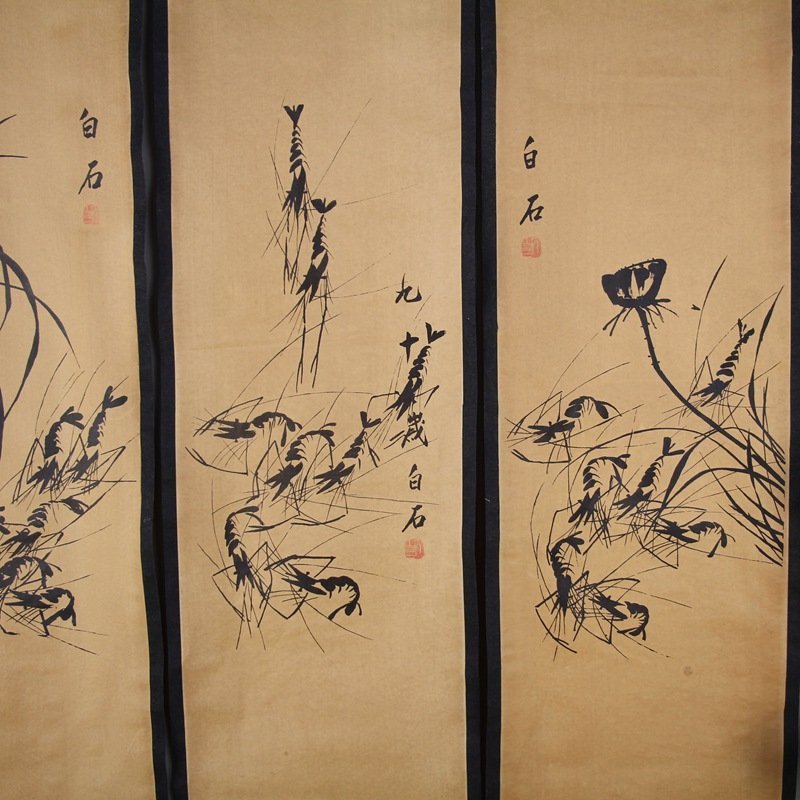 白石
九十八歲白石
白石